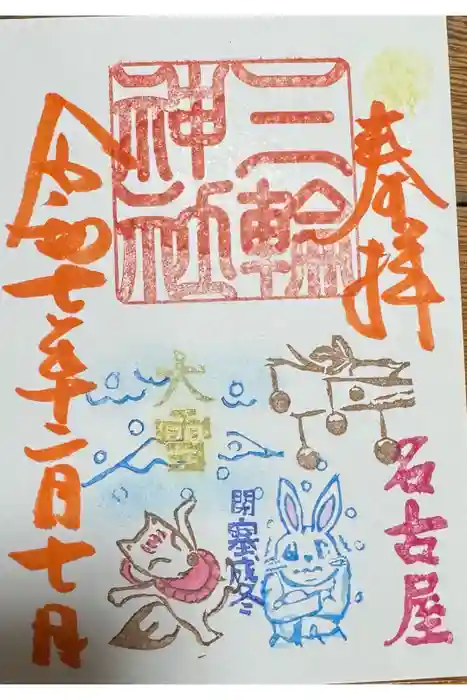 奉拝
三輪
神社
大雪
閉塞成冬
名古屋
令和七年十二月七日